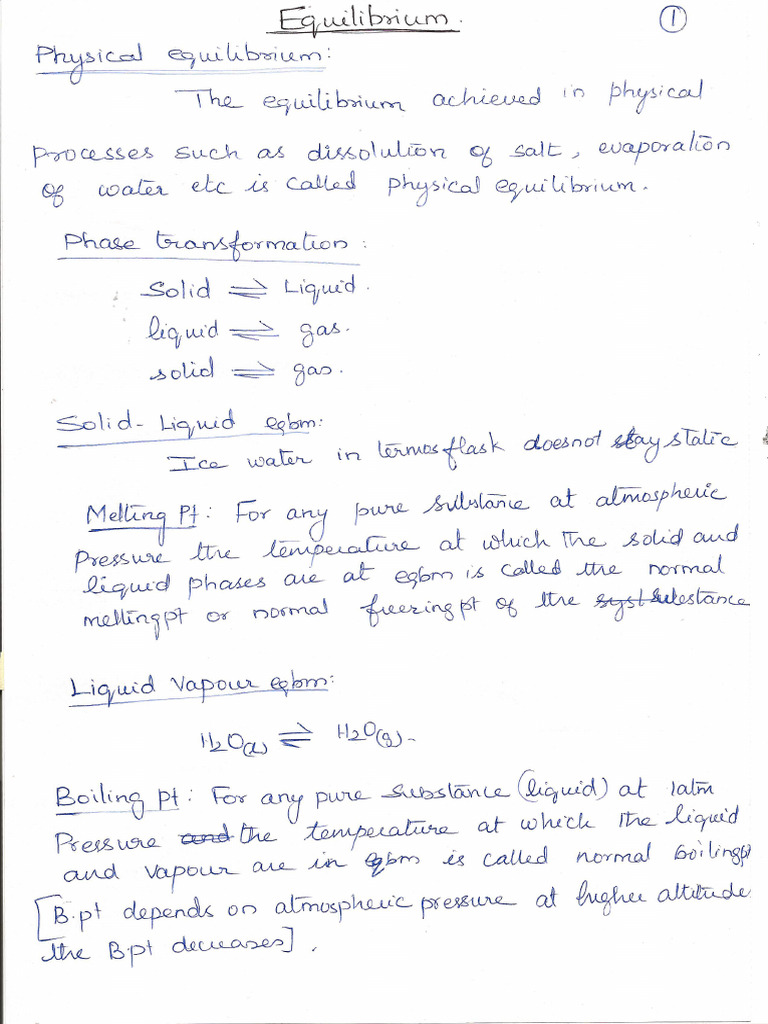 Equilibrium.
①
Physical equilibrium:
The equilibrium achieved in physical
processes such as dissolution of salt, evaporation
of water etc is called physical equilibrium.
Phase transformation:
Solid ⇌ Liquid.
liquid ⇌ gas.
solid ⇌ gas.
Solid-Liquid eqbm:
Ice water in termosflask doesnot stay static
Melting Pt: For any pure substance at atmospheric
Pressure the temperature at which the solid and
liquid phases are at eqbm is called the normal
meltingpt or normal freezingpt of the substance
Liquid Vapour eqbm:
H2O(l) ⇌ H2O(g).
Boiling pt: For any pure substance (liquid) at 1atm
Pressure the temperature at which the liquid
and vapour are in eqbm is called normal boilingpt
[B.pt depends on atmospheric pressure at higher altitude
the B.pt decreases].